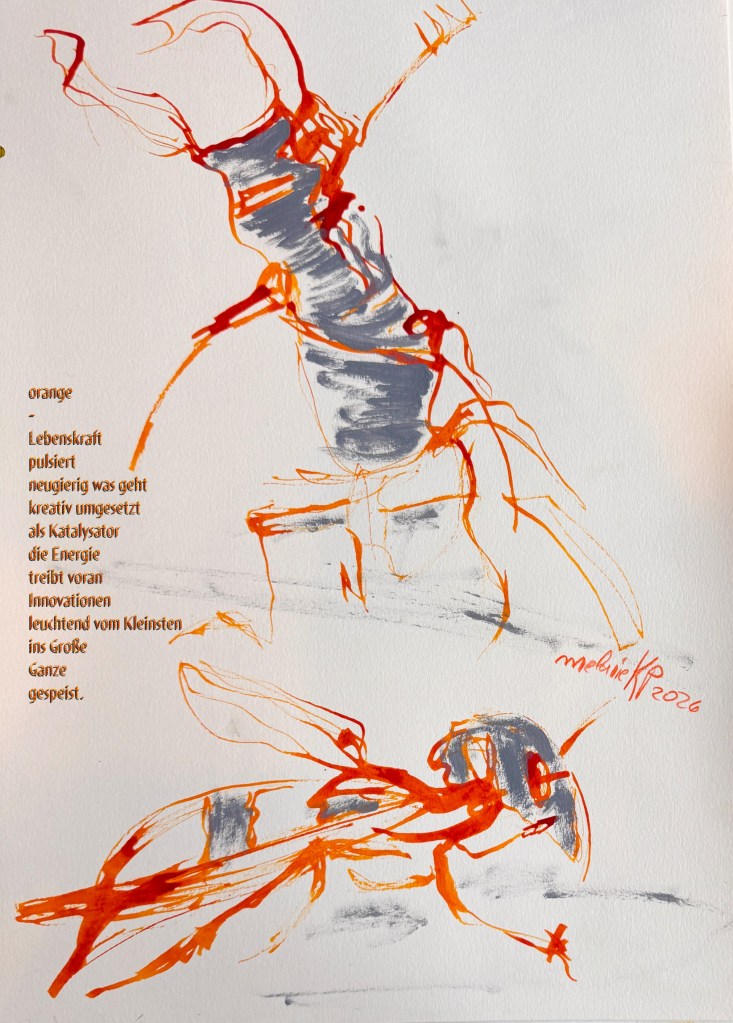 orange
-
Lebenskraft
pulsiert
neugierig was geht
kreativ umgesetzt
als Katalysator
die Energie
treibt voran
Innovationen
leuchtend vom Kleinsten
ins Große
Ganze
gespeist.
melanie KP 2026